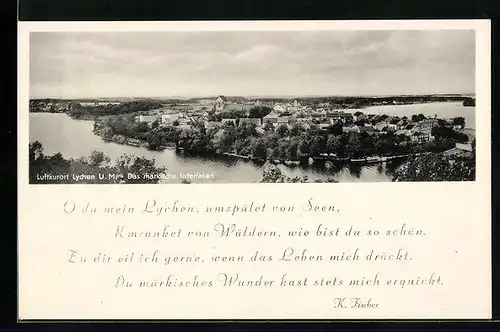 Luftkurort Lychen U. M. Das märkische Interlaken
O du mein Lychen, umspület von Seen,
Umranket von Wäldern, wie bist du so schön,
Zu dir eil ich gerne, wenn das Leben mich drückt.
Du märkisches Wunder hast stets mich erquickt.
K. Fischer